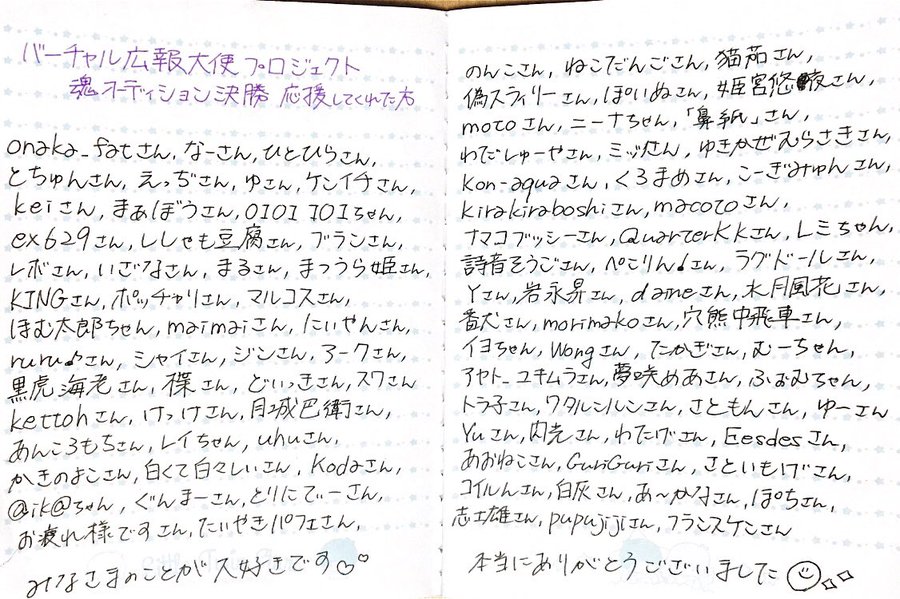 バーチャル広報大使プロジェクト
魂オーディション決勝 応援してくれた方
onaka_fatさん, なーさん, ひとひらさん,
とちゅんさん, えっぢさん, ゆさん, ケンイチさん,
keiさん, まぁぼうさん, OIOI IOIちゃん,
ex629さん, ししゃも豆腐さん, ブランさん,
レボさん, いざなさん, まるさん, まつうら姫さん,
KINGさん, ポッチャリさん, マルコスさん,
ほむ太郎ちゃん, maimaiさん, にぃやんさん,
ruru♪さん, シャイさん, ジンさん, アークさん,
黒虎海老さん, 楪さん, どいっきさん, スワさん
kettohさん, けっけさん, 月城巴衛さん,
あんころもちさん, レイちゃん, uhuさん,
かきのよこさん, 白くて白々しいさん, Kodaさん,
@ik@ちゃん, ぐんまーさん, とりにでぃーさん,
お疲れ様ですさん, たいやきパフェさん,
みなさまのことが大好きです♡♡
のんこさん, ねこだんごさん, 猫茄さん,
偽スライリーさん, ぽいぬさん, 姫宮悠さん,
motoさん, ニーナちゃん, 「鼻紙」さん,
わだしゅーやさん, ミッバさん, ゆきかぜむらさきさん,
kon-aquaさん, くろまめさん, こーぎみゅんさん,
kirakiraboshiさん, macotoさん,
ナマコブッシーさん, QuarterKkさん, レミちゃん,
詩音そうごさん, ぺこりん♪さん, ラグドールさん,
Yさん, 岩永昇さん, daineさん, 水月風花さん,
番犬さん, morimakoさん, 穴熊中飛車さん,
イヨちゃん, Wongさん, たかぎさん, むーちゃん,
アヤト_ユキムラさん, 夢咲めあさん, ふぉむちゃん,
トラ子さん, ワタルンルンさん, さともんさん, ゆーさん
Yuさん, 閃光さん, わたげさん, Eesdesさん,
あおねこさん, GuriGuriさん, さといもげさん,
コイルんさん, 白灰さん, あ〜かなさん, ぽちさん,
志士雄さん, pupujijiさん, フランスケンさん
本当にありがとうございました